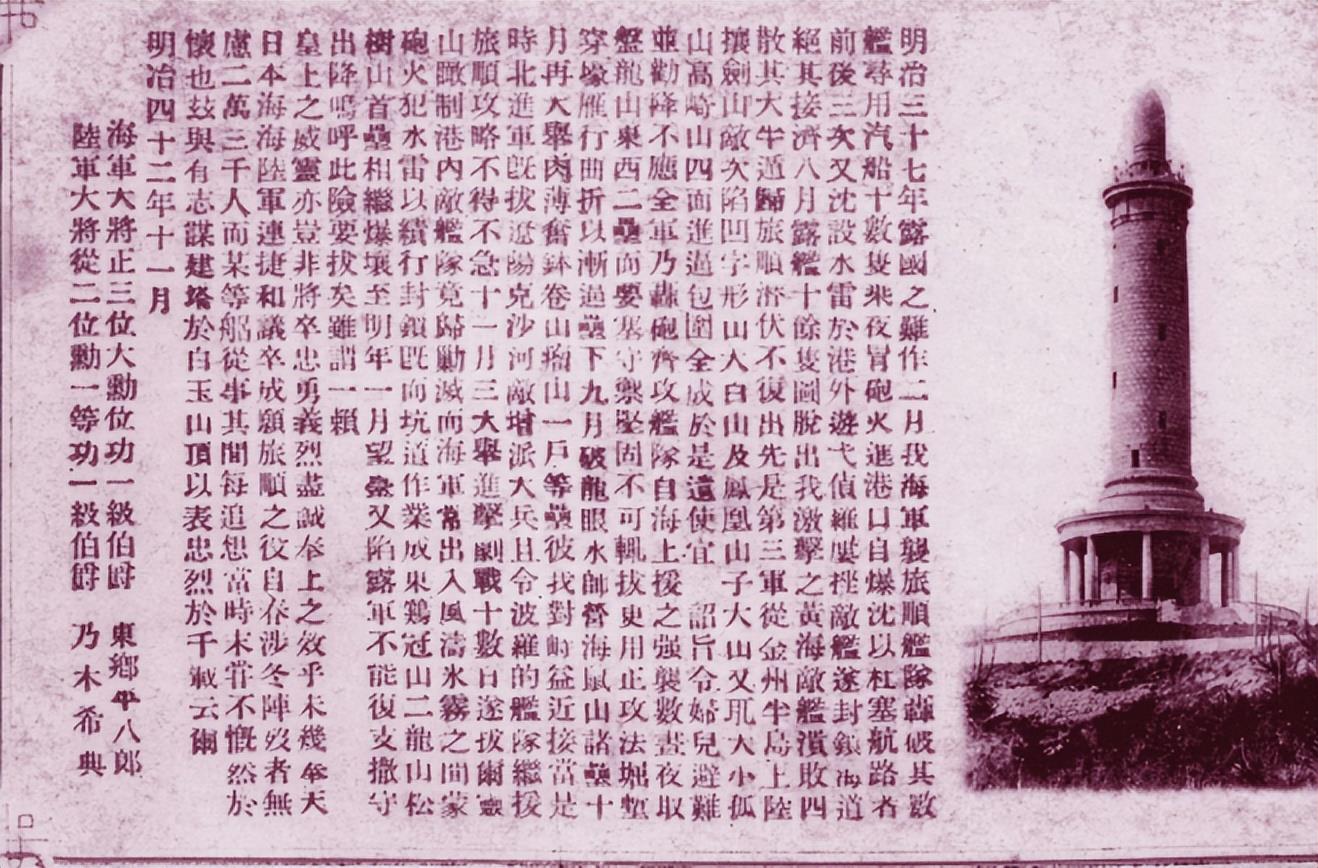 明治三十七年露國之難作二月我海軍襲旅順艦隊轟破其數
艦尋用汽船十數隻乘夜冒砲火進港口自爆沈以杜塞航路者
前後三次又沈設水雷於港外遊弋偵羅屢挫敵艦遂封鎖海道
絕其接濟八月露艦十餘隻圖脫出我激擊之黃海敵艦潰敗四
散其大半遁歸旅順潛伏不復出先是第三軍從金州半島上陸
攘劍山敵次陷凹字形山大白山及鳳凰山子大山又取大小孤
山高崎山四面進逼包圍全成於是遣使宣 詔旨令婦兒避難
並勸降不應全軍乃轟砲齊攻艦隊自海上援之强襲數晝夜取
盤龍山東西二壘而要塞守禦堅固不可輒拔更用正攻法堀塹
穿壕雁行曲折以漸逼壘下九月破龍眼水師營海鼠山諸壘十
月再大舉肉薄奮鉢卷山瘤山一戶等壘彼我對峙益近接當是
時北進軍旣拔遼陽克沙河敵增派大兵且令波羅的艦隊繼援
旅順攻略不得不急十一月三大舉進擊劇戰十數日遂拔爾靈
山瞰制港內敵艦隊竟歸勦滅而海軍常出入風濤氷霧之間蒙
砲火犯水雷以續行封鎖旣而坑道作業成東鷄冠山二龍山松
樹山首壘相繼爆壞至明年一月望臺又陷露軍不能復支撤守
出降嗚呼此險要拔矣雖謂一賴
皇上之威靈亦豈非將卒忠勇義烈盡誠奉上之效乎未幾奉天
日本海海陸軍連捷和議卒成顧旅順之役自春涉冬陣歿者無
慮二萬三千人而某等躬從事其間每追想當時未嘗不慨然於
懷也玆與有志謀建塔於白玉山頂以表忠烈於千載云爾
明治四十二年十一月
海軍大將正三位大勳位功一級伯爵 東鄉平八郎
陸軍大將從二位勳一等功一級伯爵 乃木希典